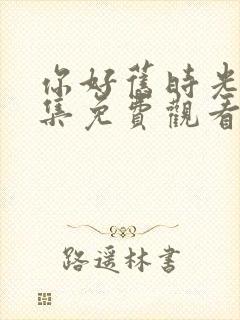 你好舊時光
集免費觀看
路遥林書